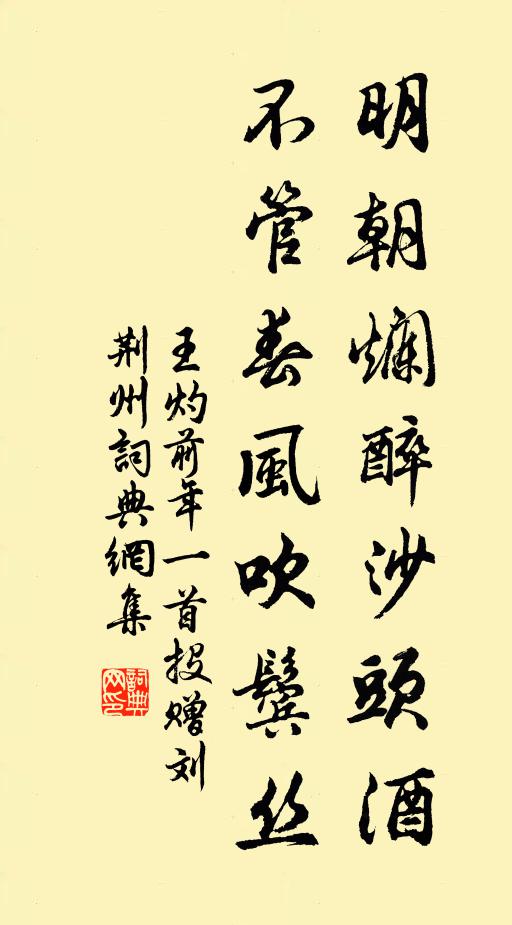 明朝爛醉沙頭酒
不管春風吹鬢丝
王灼前年一首投赠刘
荆州詞典網集
詞典
网印